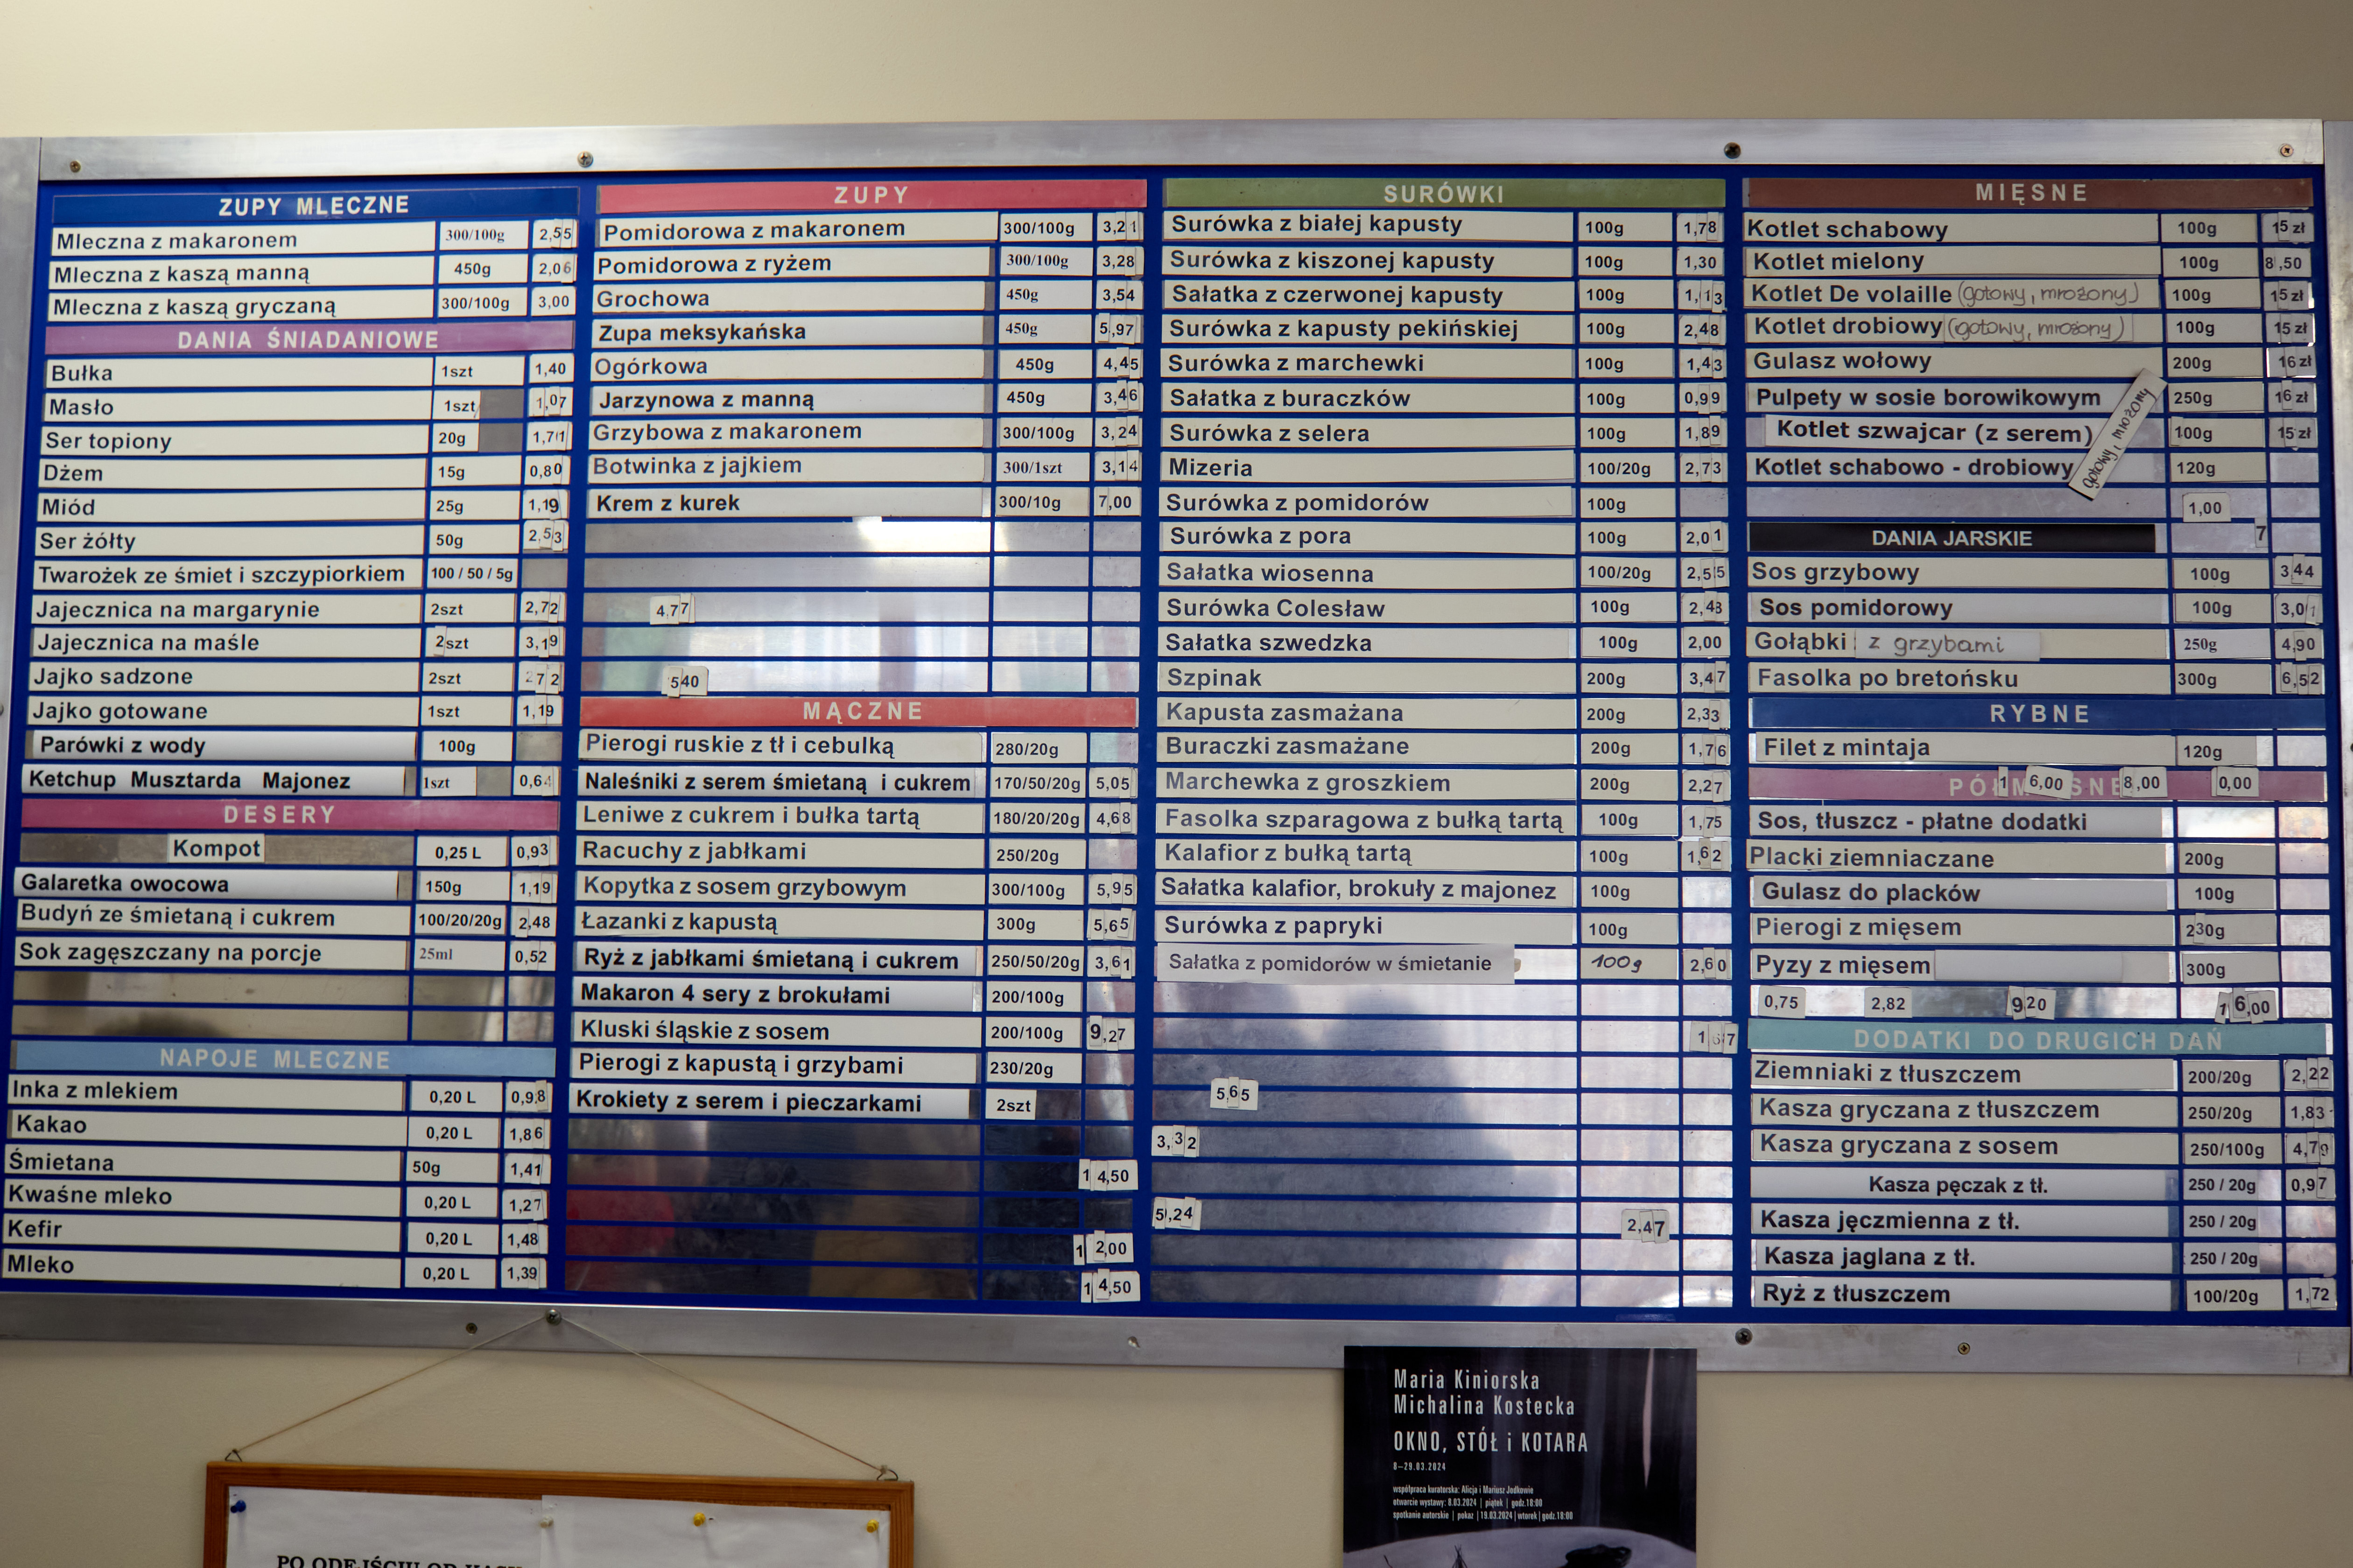 ZUPY MLECZNE
Mleczna z makaronem 300/100g 2,55
Mleczna z kaszą manną 450g 2,06
Mleczna z kaszą gryczaną 300/100g 3,00
DANIA ŚNIADANIOWE
Bułka 1szt 1,40
Masło 1szt 1,07
Ser topiony 20g 1,71
Dżem 15g 0,80
Miód 25g 1,19
Ser żółty 50g 2,53
Twarożek ze śmiet i szczypiorkiem 100 / 50 / 5g
Jajecznica na margarynie 2szt 2,72
Jajecznica na maśle 2szt 3,19
Jajko sadzone 2szt 2,72
Jajko gotowane 1szt 1,19
Parówki z wody 100g
Ketchup Musztarda Majonez 1szt 0,64
DESERY
Kompot 0,25 L 0,93
Galaretka owocowa 150g 1,19
Budyń ze śmietaną i cukrem 100/20/20g 2,48
Sok zagęszczany na porcje 25ml 0,52
NAPOJE MLECZNE
Inka z mlekiem 0,20 L 0,98
Kakao 0,20 L 1,86
Śmietana 50g 1,41
Kwaśne mleko 0,20 L 1,27
Kefir 0,20 L 1,48
Mleko 0,20 L 1,39
ZUPY
Pomidorowa z makaronem 300/100g 3,21
Pomidorowa z ryżem 300/100g 3,28
Grochowa 450g 3,54
Zupa meksykańska 450g 5,97
Ogórkowa 450g 4,45
Jarzynowa z manną 450g 3,46
Grzybowa z makaronem 300/100g 3,24
Botwinka z jajkiem 300/1szt 3,14
Krem z kurek 300/10g 7,00
4,77
540
MĄCZNE
Pierogi ruskie z tł i cebulką 280/20g
Naleśniki z serem śmietaną i cukrem 170/50/20g 5,05
Leniwe z cukrem i bułka tartą 180/20/20g 4,68
Racuchy z jabłkami 250/20g
Kopytka z sosem grzybowym 300/100g 5,95
Łazanki z kapustą 300g 5,65
Ryż z jabłkami śmietaną i cukrem 250/50/20g 3,61
Makaron 4 sery z brokułami 200/100g
Kluski śląskie z sosem 200/100g 9,27
Pierogi z kapustą i grzybami 230/20g
Krokiety z serem i pieczarkami 2szt
14,50
12,00
14,50
SURÓWKI
Surówka z białej kapusty 100g 1,78
Surówka z kiszonej kapusty 100g 1,30
Sałatka z czerwonej kapusty 100g 1,13
Surówka z kapusty pekińskiej 100g 2,48
Surówka z marchewki 100g 1,43
Sałatka z buraczków 100g 0,99
Surówka z selera 100g 1,89
Mizeria 100/20g 2,73
Surówka z pomidorów 100g
Surówka z pora 100g 2,01
Sałatka wiosenna 100/20g 2,55
Surówka Colesław 100g 2,48
Sałatka szwedzka 100g 2,00
Szpinak 200g 3,47
Kapusta zasmażana 200g 2,33
Buraczki zasmażane 200g 1,76
Marchewka z groszkiem 200g 2,27
Fasolka szparagowa z bułką tartą 100g 1,75
Kalafior z bułką tartą 100g 1,62
Sałatka kalafior, brokuły z majonez 100g
Surówka z papryki 100g
Sałatka z pomidorów w śmietanie 100g 2,60
1,67
5,65
3,32
5,24
2,47
MIĘSNE
Kotlet schabowy 100g 15 zł
Kotlet mielony 100g 8,50
Kotlet De volaille (gotowy, mrożony) 100g 15 zł
Kotlet drobiowy (gotowy, mrożony) 100g 15 zł
Gulasz wołowy 200g 16 zł
Pulpety w sosie borowikowym 250g 16 zł
Kotlet szwajcar (z serem) 100g 15 zł
Kotlet schabowo - drobiowy 120g
gotowy i mrożony
1,00
DANIA JARSKIE 7
Sos grzybowy 100g 3,44
Sos pomidorowy 100g 3,01
Gołąbki z grzybami 250g 4,90
Fasolka po bretońsku 300g 6,52
RYBNE
Filet z mintaja 120g
1 6,00 8,00 0,00
Sos, tłuszcz - płatne dodatki
Placki ziemniaczane 200g
Gulasz do placków 100g
Pierogi z mięsem 230g
Pyzy z mięsem 300g
0,75 2,82 9,20 16,00
DODATKI DO DRUGICH DAŃ
Ziemniaki z tłuszczem 200/20g 2,22
Kasza gryczana z tłuszczem 250/20g 1,83
Kasza gryczana z sosem 250/100g 4,79
Kasza pęczak z tł. 250 / 20g 0,97
Kasza jęczmienna z tł. 250 / 20g
Kasza jaglana z tł. 250 / 20g
Ryż z tłuszczem 100/20g 1,72
Maria Kiniorska
Michalina Kostecka
OKNO, STÓŁ i KOTARA
8–29.03.2024
współpraca kuratorska: Alicja i Mariusz Jodkowie
otwarcie wystawy: 8.03.2024 | piątek | godz.18:00
spotkanie autorskie | pokaz | 19.03.2024 | wtorek | godz.18:00
PO ODEJŚCIU OD KASY